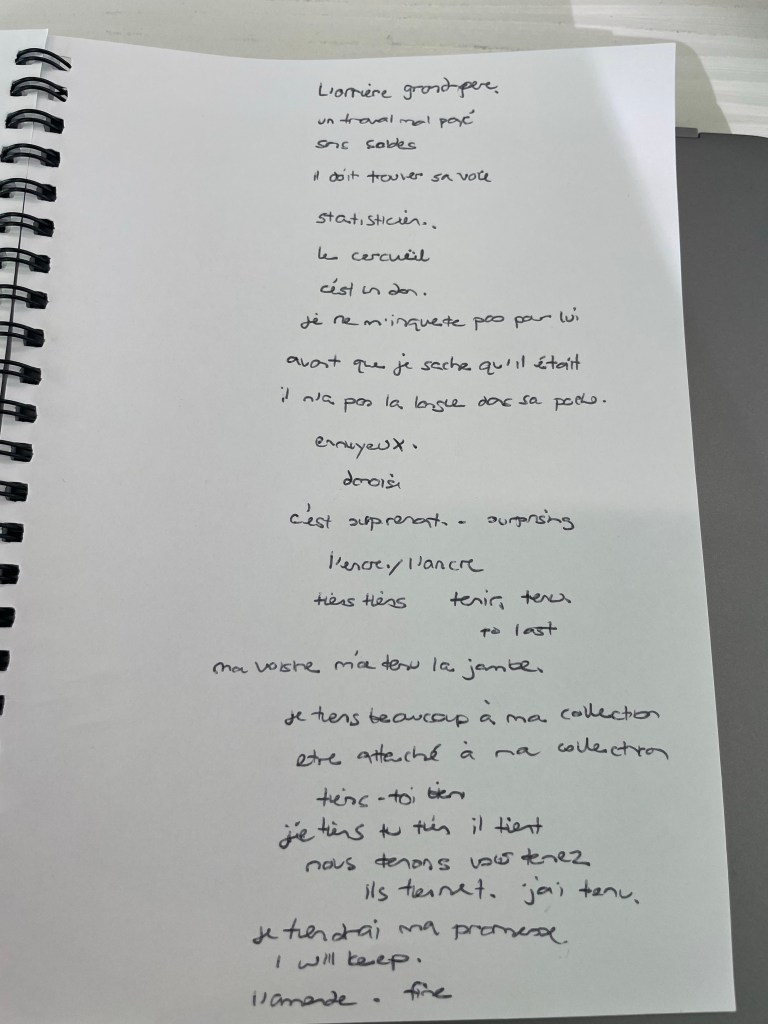 L'arrière grand-père.
un travail mal payé
sans soldes
il doit trouver sa voie
statisticien..
le cercueil
c'est un don.
je ne m'inquete pas par lui
avant que je sache qu'il était
il n'a pas la langue dans sa poche.
ennuyeux.
c'est surprenant. - surprising
l'encre./l'ancre
tiens tiens tenir, tenu
to last
ma voisine m'a tenu la jambe.
je tiens beaucoup à ma collection
etre attaché à ma collection
tiens-toi bien
je tiens tu tiens il tient
nous tenons vous tenez
ils tiennet. j'ai tenu.
je tiendrai ma promesse.
I will keep.
l'amende. fine